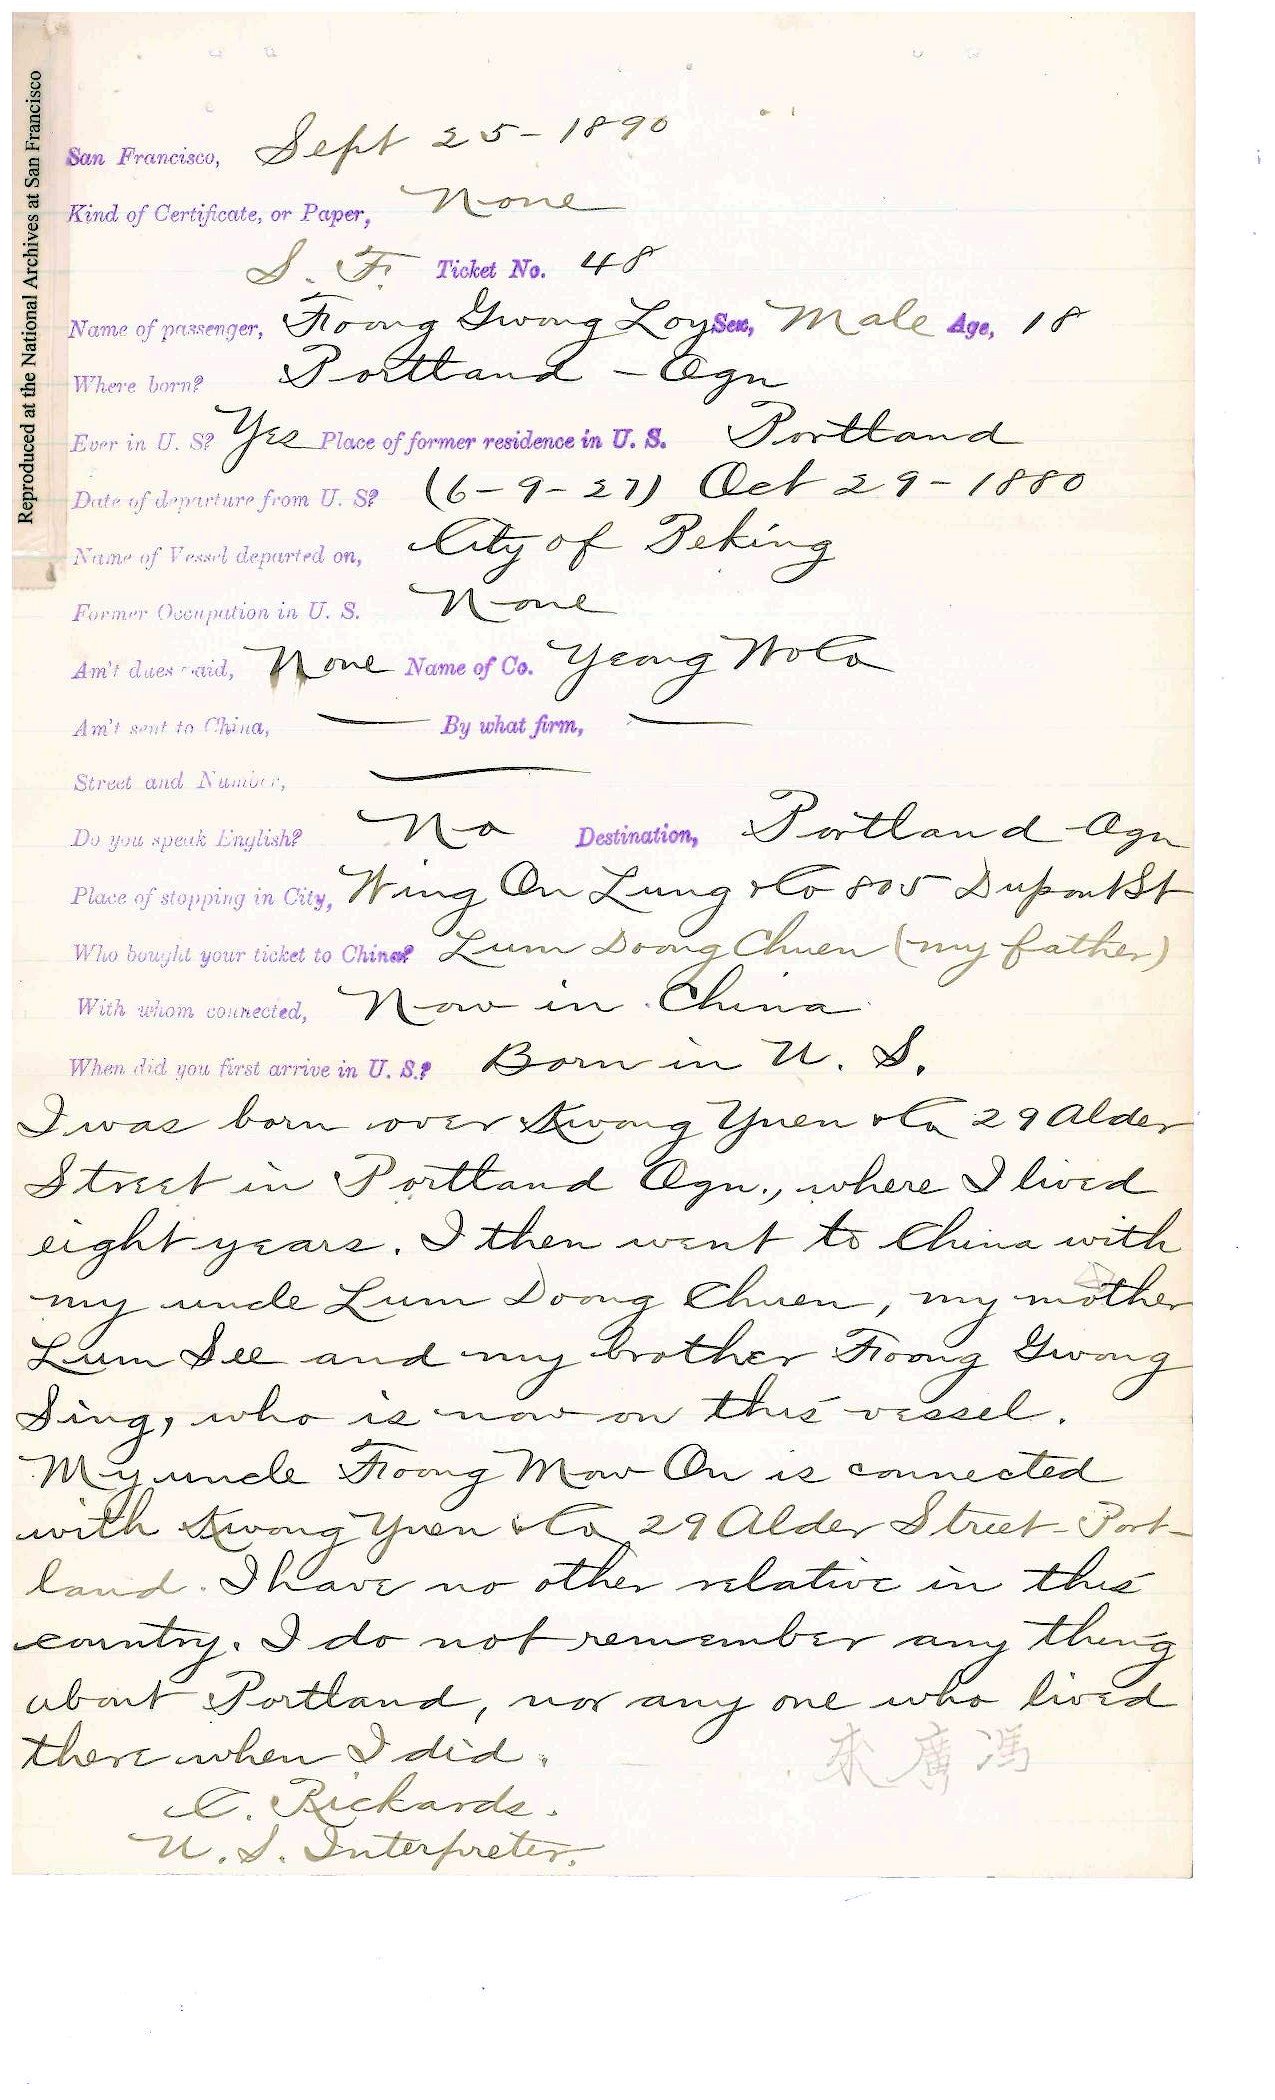 Reproduced at the National Archives at San Francisco
San Francisco, Sept 25 - 1890
Kind of Certificate, or Paper, None
S. F. Ticket No. 48
Name of passenger, Foong Gwong Loy Sex, Male Age, 18
Where born? Portland - Ogn
Ever in U. S? Yes Place of former residence in U. S. Portland
Date of departure from U. S? (6-9-27) Oct 29 - 1880
Name of Vessel departed on, City of Peking
Former Occupation in U. S. None
Am't dues paid, None Name of Co. Yeong Wo Co
Am't sent to China, — By what firm, —
Street and Number, —
Do you speak English? No Destination, Portland Ogn
Place of stopping in City, Wing On Lung & Co 805 Dupont St
Who bought your ticket to China? Lum Doong Chuen (my father)
With whom connected, Now in China
When did you first arrive in U. S.? Born in U. S.
I was born over Kwong Yuen & Co 29 Alder
Street in Portland Ogn., where I lived
eight years. I then went to China with
my uncle Lum Doong Chuen, my mother
Lum See and my brother Foong Gwong
Sing, who is now on this vessel.
My uncle Foong Mow On is connected
with Kwong Yuen & Co 29 Alder Street - Port-
land. I have no other relative in this
country. I do not remember any thing
about Portland, nor any one who lived
there when I did.
來廣馮
C. Rickards.
U. S. Interpreter.